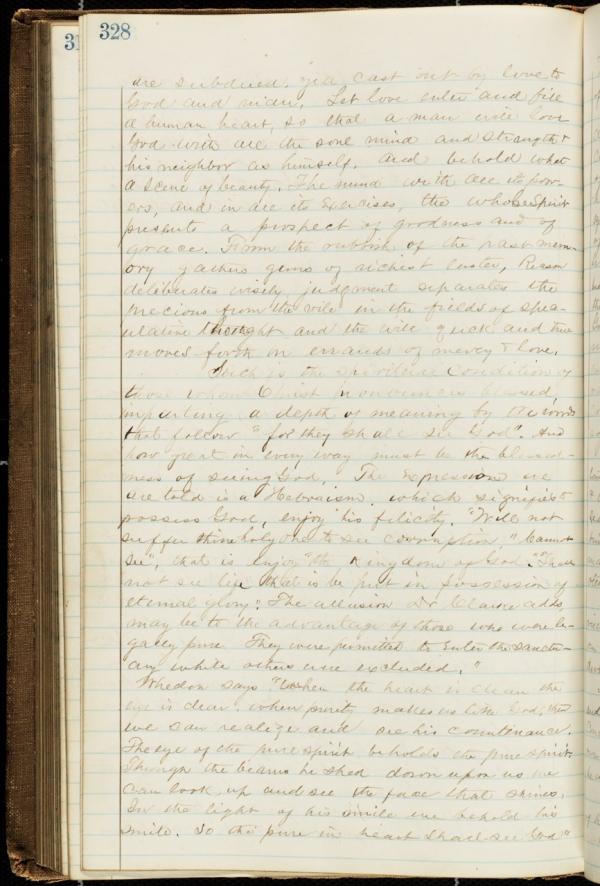 328
31
are subdued, yea cast out by love to
God and man. Let love enter and fill
a human heart, so that a man will love
God with all the soul mind and strength &
his neighbor as himself. and behold what
a scene of beauty. The mind with all its pow-
ers, and in all its exercises, the whole spirit
presents a prospect of goodness and of
grace. From the rubbish of the past mem-
ory gathers gems of richest luster, Reason
deliberates wisely, judgment separates the
precious from the vile in the fields of spec-
ulative thought and the will quick and true
moves forth on errands of mercy & love.
Such is the spiritual condition of
those whom Christ pronounces blessed,
imparting a depth of meaning by the words
that follow "for they shall see God". And
how great in every way must be the blessed-
ness of seeing God. The expression we
are told is a Hebraism, which signifies to
possess God, enjoy his felicity. "Will not
suffer thine holy one to see corruption" "Cannot
see", that is enjoy "the Kingdom of God". "Shall
not see life that is be put in possession of
eternal glory". The allusion Dr Clarke adds,
may be to the advantage of those who were le-
gally pure. They were permitted to enter the sanctu-
ary while others were excluded."
Whedon says "When the heart is clean the
eye is clear, when purity makes us like God, then
we can realize and see his countenance.
The eye of the pure spirit beholds the pure spirit.
Through the beams he shed down upon us we
can look up and see the face that shines.
In the light of his smile we behold his
smile. So the pure in heart shall see God"